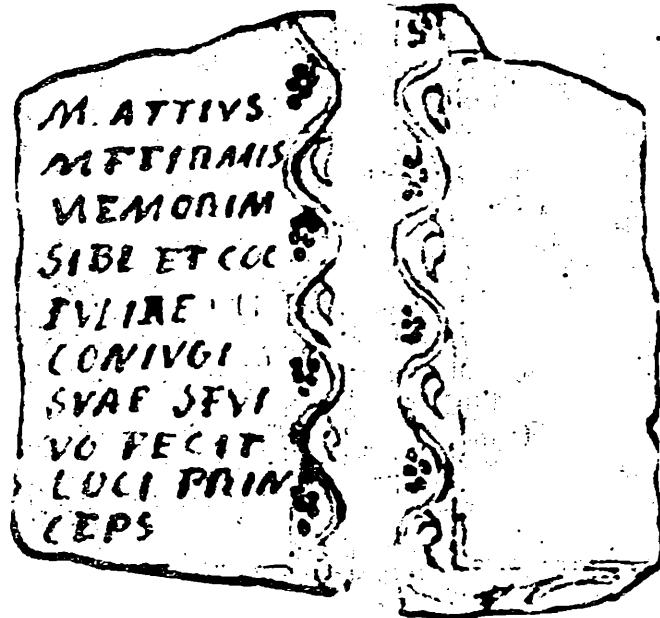 M. ATTIVS
MEMORIAM
SIBI ET COC
IVLIAE
CONIVGI
SVAE SE VI
VO FECIT
LOCI PRIN
CEPS